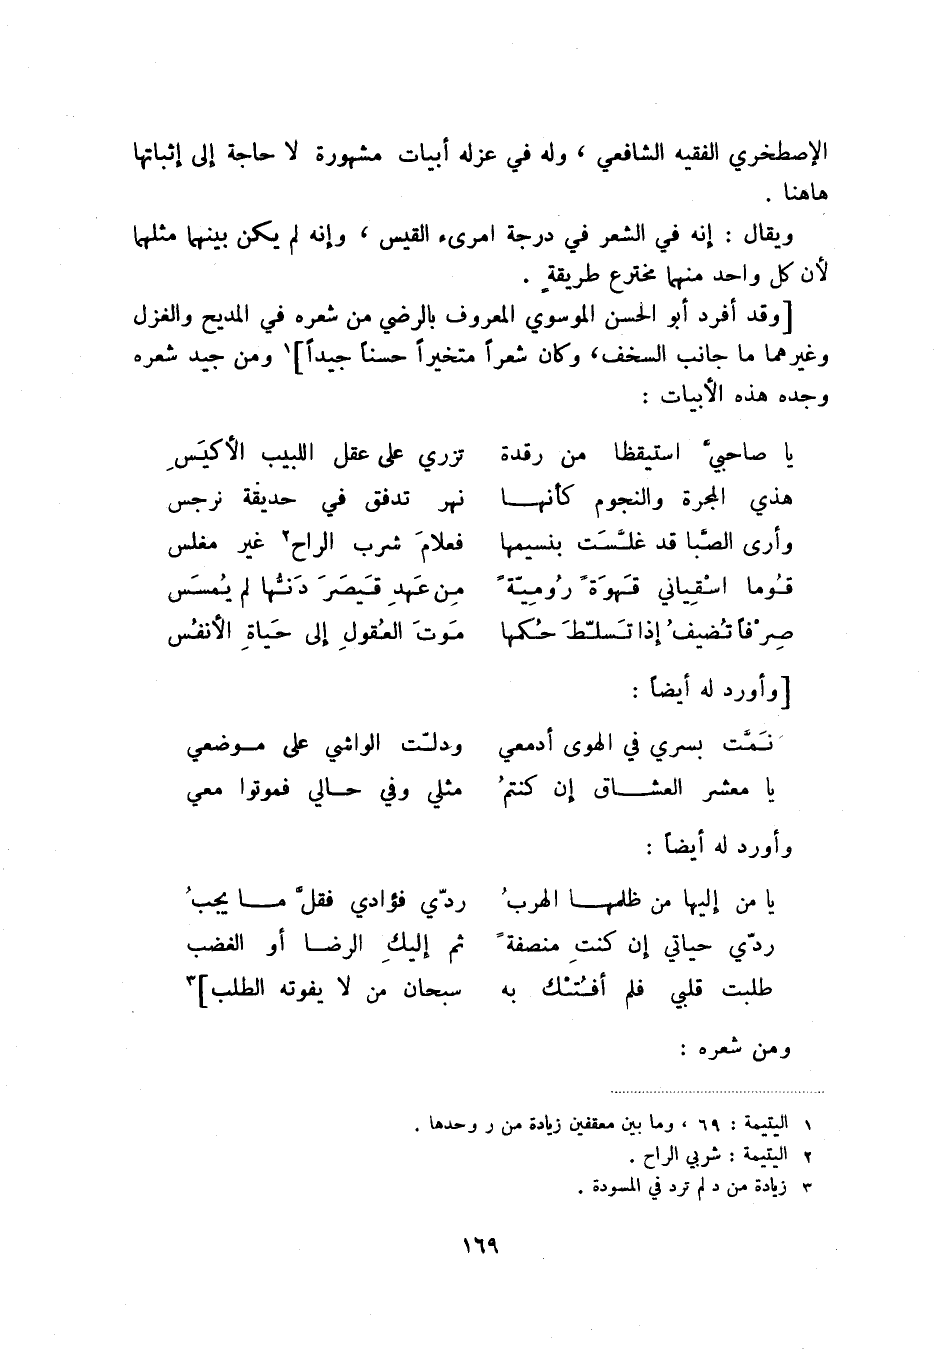 الإصطخري الفقيه الشافعي ، وله في عزله أبيات مشهورة لا حاجة إلى إثباتها
هاهنا .
ويقال : إنه في الشعر في درجة امرىء القيس ، وإنه لم يكن بينهما مثلهما
لأن كل واحد منهما مخترع طريقةٍ .
[وقد أفرد أبو الحسن الموسوي المعروف بالرضي من شعره في المديح والغزل
وغيرهما ما جانب السخف، وكان شعراً متخيراً حسناً جيداً]١ ومن جيد شعره
وجده هذه الأبيات :
يا صاحبيَّ استيقظا من رقدة تزري على عقل اللبيب الأكيَسِ
هذي المجرة والنجوم كأنهـا نهر تدفق في حديقة نرجس
وأرى الصَّبا قد غلَّسَت بنسيمها فعلامَ شرب الراح٢ غير مغلس
قُوما اسْقِياني قَهوَةً رُومِيّةً مِن عَهدِ قَيصَرَ دَنُّها لم يُمسَس
صِرْفاً تُضيفُ إذا تَسلّطَ حُكمها مَوتَ العُقولِ إلى حَياةِ الأنفُس
[وأورد له أيضاً :
نَمَّت بسري في الهوى أدمعي ودلّت الواشي على مـوضعي
يا معشر العشـاق إن كنتمُ مثلي وفي حـالي فموتوا معي
وأورد له أيضاً :
يا من إليها من ظلمهـا الهربُ ردّي فؤادي فقلَّ مـا يجبُ
ردّي حياتي إن كنتِ منصفةً ثم إليكِ الرضـا أو الغضب
طلبت قلبي فلم أفُتْك به سبحان من لا يفوته الطلب]٣
ومن شعره :
١ اليتيمة : ٦٩ ، وما بين معقفين زيادة من ر وحدها .
٢ اليتيمة : شربي الراح .
٣ زيادة من د لم ترد في المسودة .
١٦٩